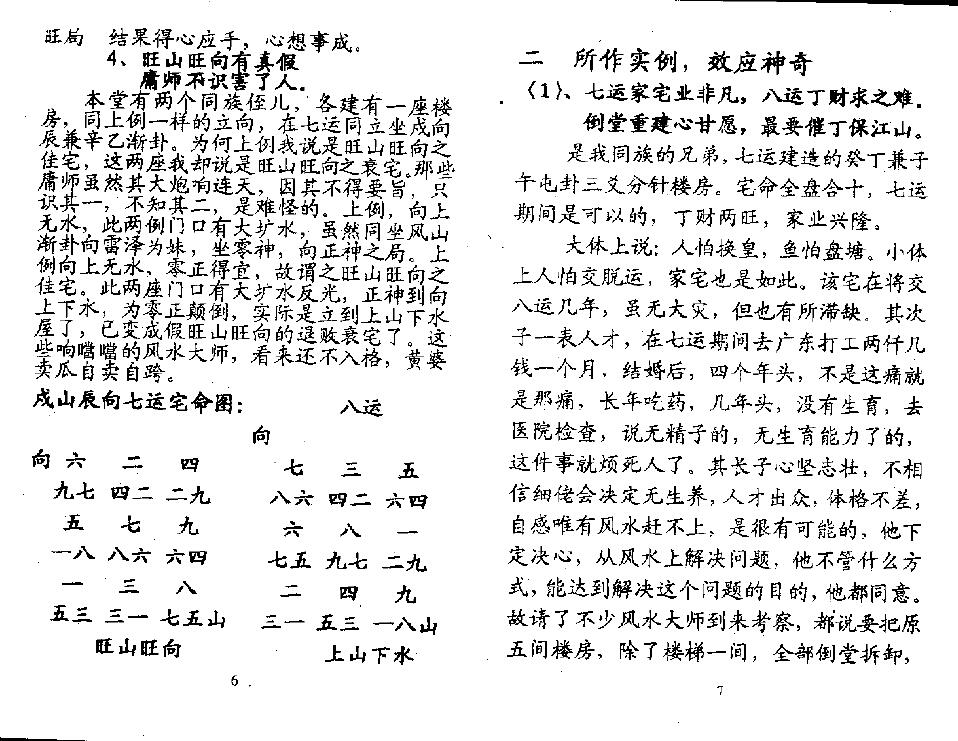 旺局　结果得心应手，心想事成。
4、旺山旺向有真假
庸师不识害了人。
本堂有两个同族侄儿，各建有一座楼
房，同上例一样的立向，在七运同立坐戌向
辰兼辛乙渐卦。为何上例我说是旺山旺向之
住宅，这两座我却说是旺山旺向之衰宅。那些
庸师虽然其大炮响连天，因其不得要旨，只
识其一，不知其二，是难怪的。上例，向上
无水，此两例门口有大圹水，虽然同坐风山
渐卦向雷泽为妹，坐零神，向正神之局。上
例向上无水，零正得宜，故谓之旺山旺向之
住宅。此两座门口有大圹水反光，正神到向
上下水，为零正颠倒，实际是立到上山下水
屋了，已变成假旺山旺向的退败衰宅了。这
些响噹噹的风水大师，看来还不入格，黄婆
卖瓜自卖自跨。
戌山辰向七运宅命图：　八运
向
向 六 二 四　七 三 五
九七 四二 二九　八六 四二 六四
五 七 九　六 八 一
一八 八六 六四　七五 九七 二九
一 三 八　二 四 九
五三 三一 七五山　三一 五三 一八山
旺山旺向　上山下水
6
二　所作实例，效应神奇
〈1〉、七运家宅业非凡，八运丁财求之难。
倒堂重建心甘愿，最要催丁保江山。
是我同族的兄弟，七运建造的癸丁兼子
午屯卦三爻分针楼房。宅命全盘合十，七运
期间是可以的，丁财两旺，家业兴隆。
大体上说：人怕换皇，鱼怕盘塘。小体
上人怕交脱运，家宅也是如此。该宅在将交
八运几年，虽无大灾，但也有所滞缺。其次
子一表人才，在七运期间去广东打工两仟几
钱一个月，结婚后，四个年头，不是这痛就
是那痛，长年吃药，几年头，没有生育，去
医院检查，说无精子的，无生育能力了的，
这件事就烦死人了。其长子心坚志壮，不相
信细佬会决定无生养，人才出众，体格不差，
自感唯有风水赶不上，是很有可能的，他下
定决心，从风水上解决问题，他不管什么方
式，能达到解决这个问题的目的，他都同意。
故请了不少风水大师到来考察，都说要把原
五间楼房，除了楼梯一间，全部倒堂拆卸，
7